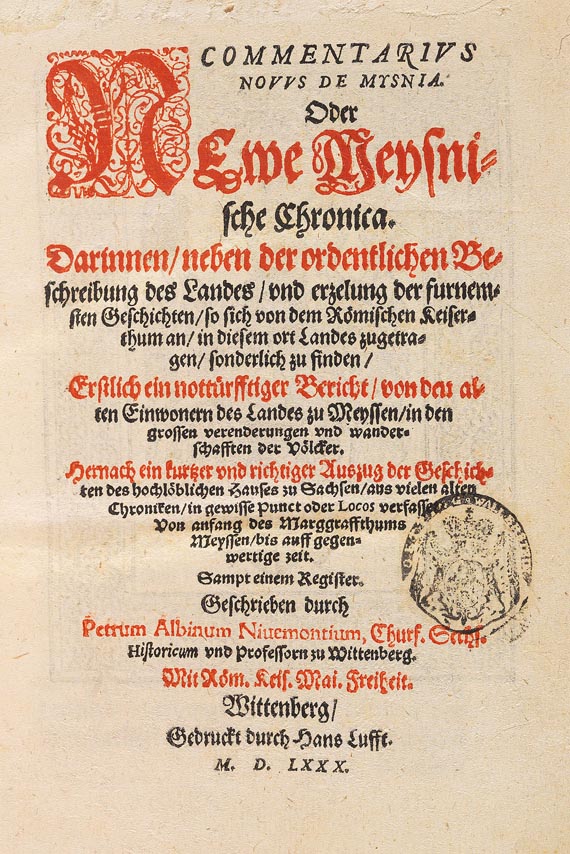 COMMENTARIVS
NOVVS DE MYSNIA.
Oder
NEwe Meysni-
sche Chronica.
Darinnen/ neben der ordentlichen Be-
schreibung des Landes/ vnd erzelung der furnem-
sten Geschichten/ so sich von dem Römischen Keiser-
thum an/ in diesem ort Landes zugetra-
gen/ sonderlich zu finden/
Erstlich ein nottürfftiger Bericht/ von den al-
ten Einwonern des Landes zu Meyssen/ in den
grossen verenderungen vnd wander-
schafften der Völcker.
Hernach ein kurtzer vnd richtiger Auszug der Geschich-
ten des hochlöblichen Hauses zu Sachsen/ aus vielen alten
Chroniken/ in gewisse Punct oder Locos verfasse
Von anfang des Marggraffthums
Meyssen/ bis auff gegen-
wertige zeit.
Sampt einem Register.
Geschrieben durch
Petrum Albinum Niuemontium, Churf. Sechs.
Historicum vnd Professorn zu Wittenberg.
Mit Röm. Keis. Mai. Freiheit.
Wittenberg/
Gedruckt durch Hans Lufft.
M. D. LXXX.